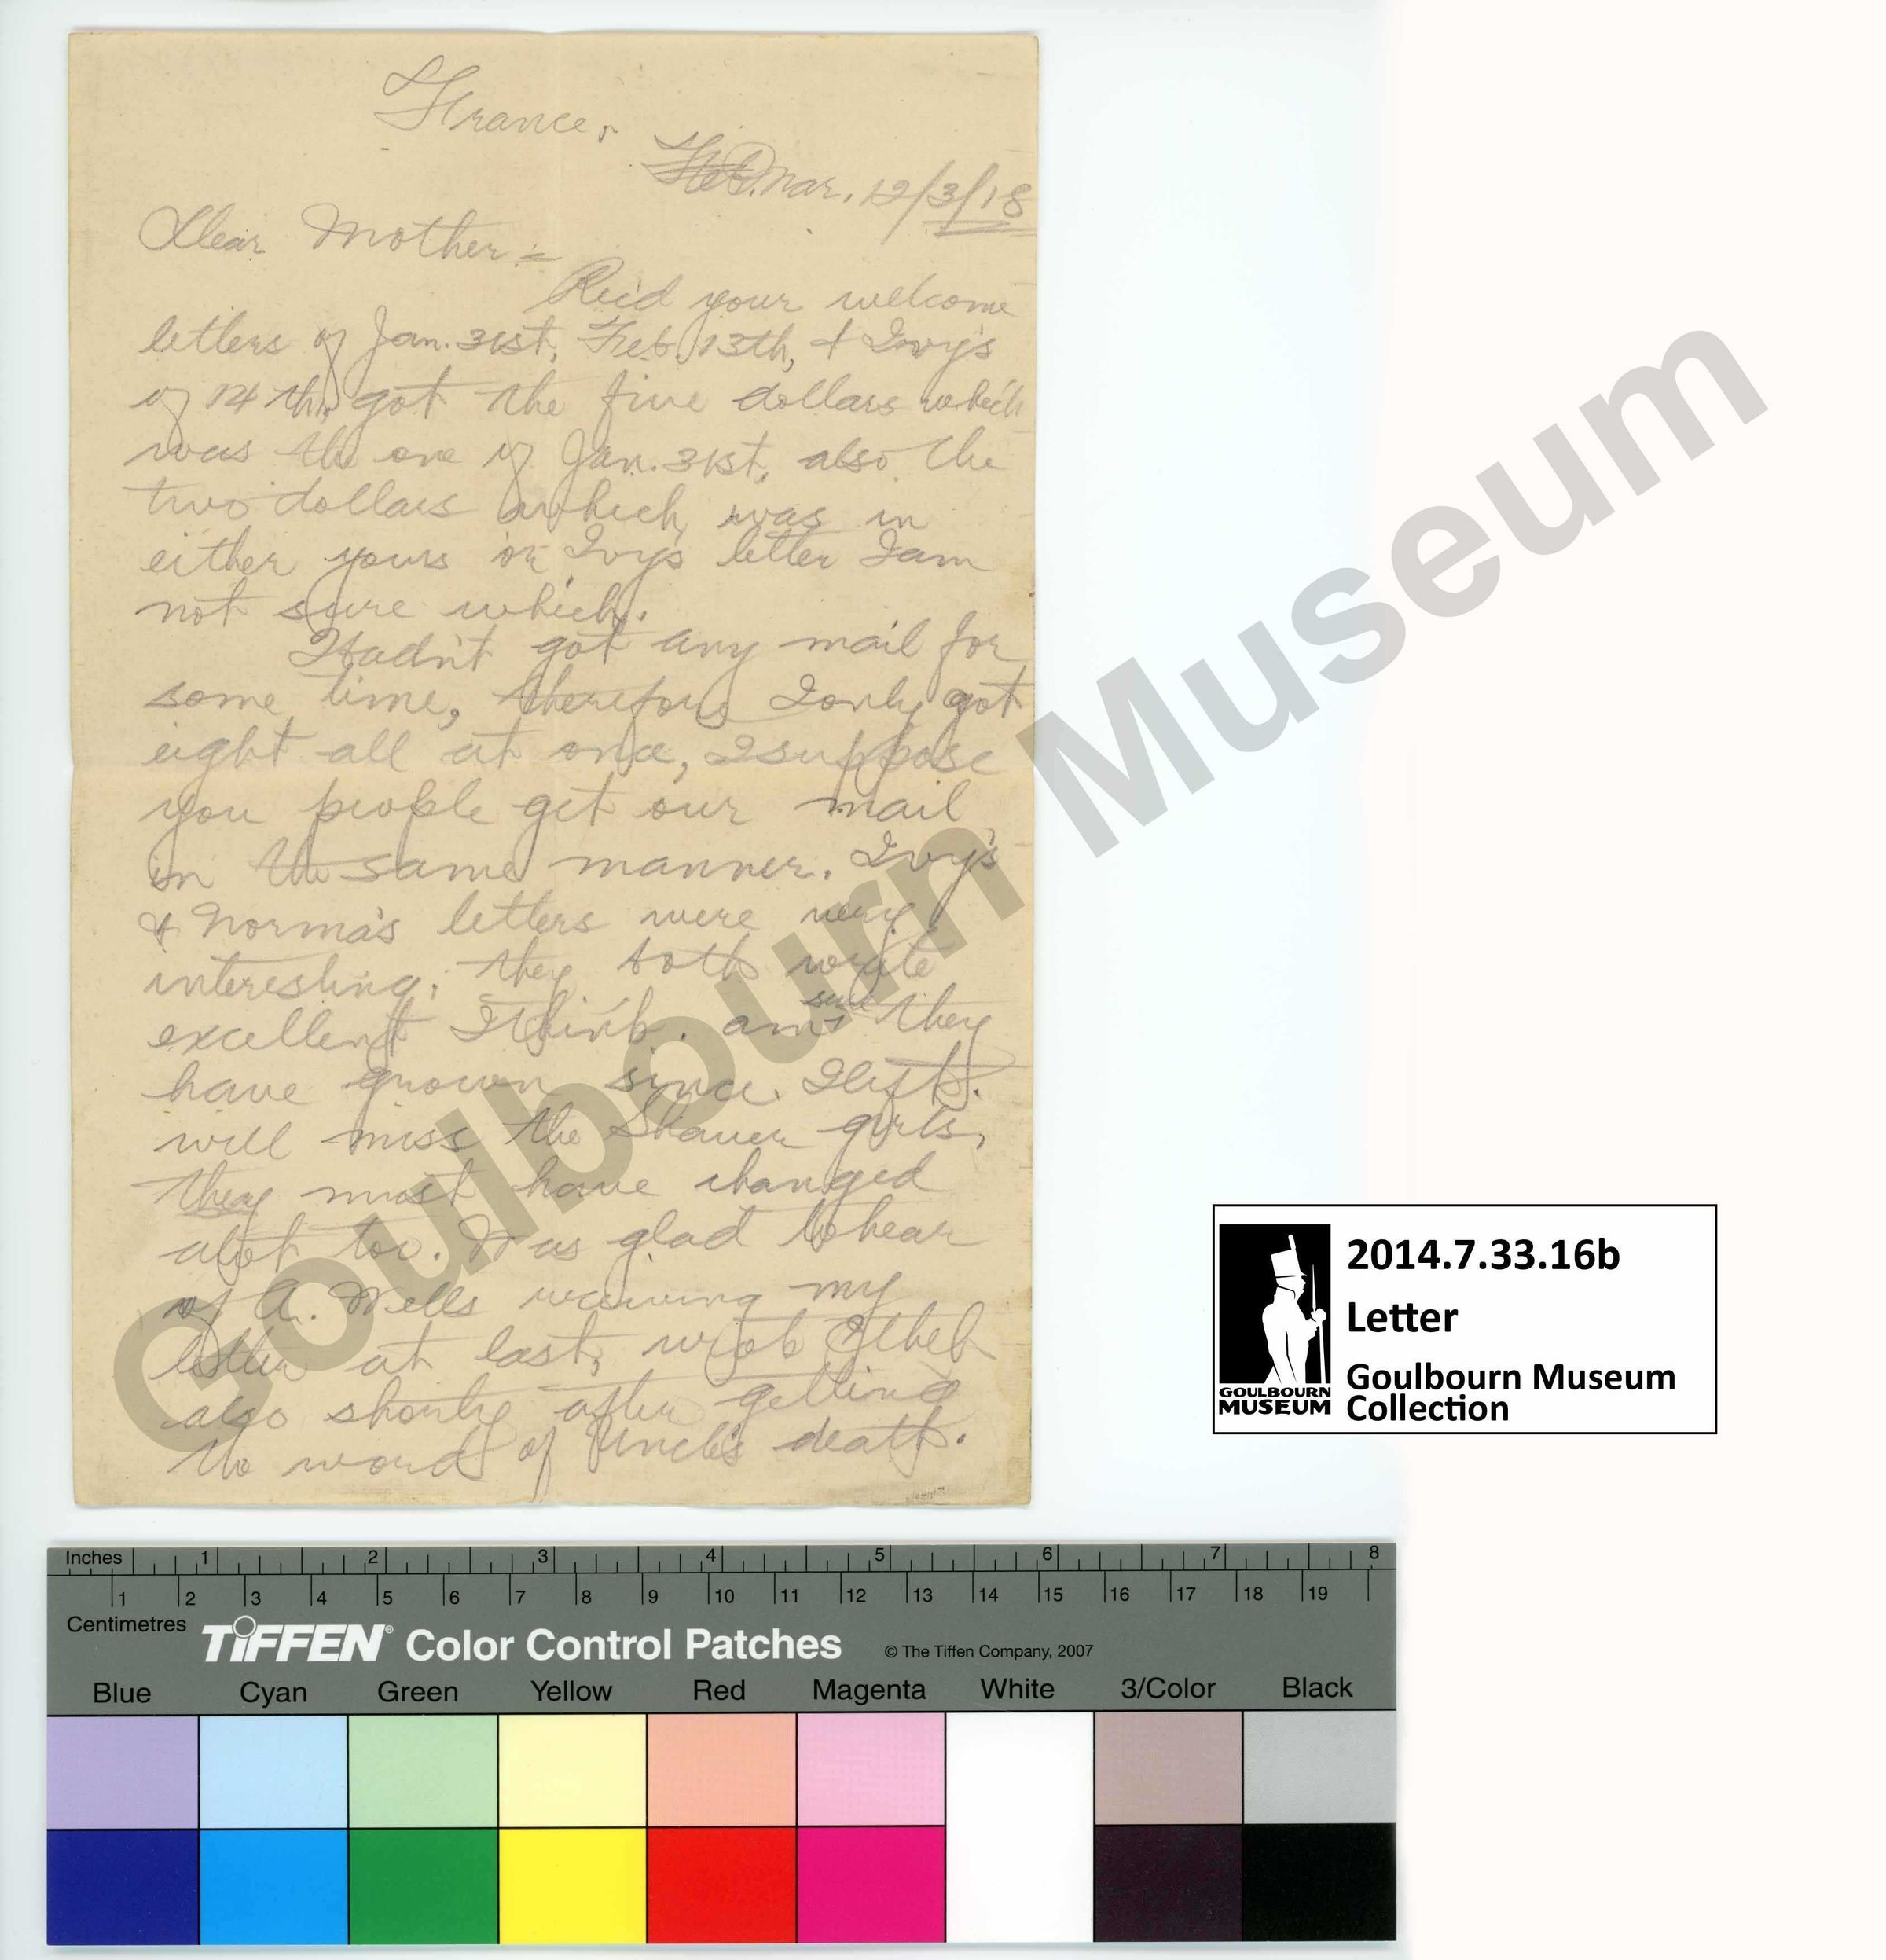 France.
Feb. Mar. 12/3/18
Dear Mother:-
Rec'd your welcome
letters of Jan. 31st, Feb. 13th, & Ivy's
of 14 th. got the five dollars which
was the one of Jan. 31st, also the
two dollars which was in
either yours or Ivy's letter I am
not sure which.
Hadn't got any mail for
some time, therefore I only got
eight all at once, I suppose
you people get our mail
in the same manner. Ivy's
& Norma's letters were very
interesting; they both write
excellent I think. am sure they
have grown since I left.
will miss the Shaver girls,
they must have changed
alot too. Was glad to hear
of A. Wells receiving my
letter at last, wrote Ethel
also shortly after getting
the word of Uncle's death.
Goulbourn Museum
2014.7.33.16b
Letter
Goulbourn Museum
Collection
GOULBOURN
MUSEUM
Inches 1 2 3 4 5 6 7 8
1 2 3 4 5 6 7 8 9 10 11 12 13 14 15 16 17 18 19
Centimetres
TIFFEN® Color Control Patches © The Tiffen Company, 2007
Blue Cyan Green Yellow Red Magenta White 3/Color Black